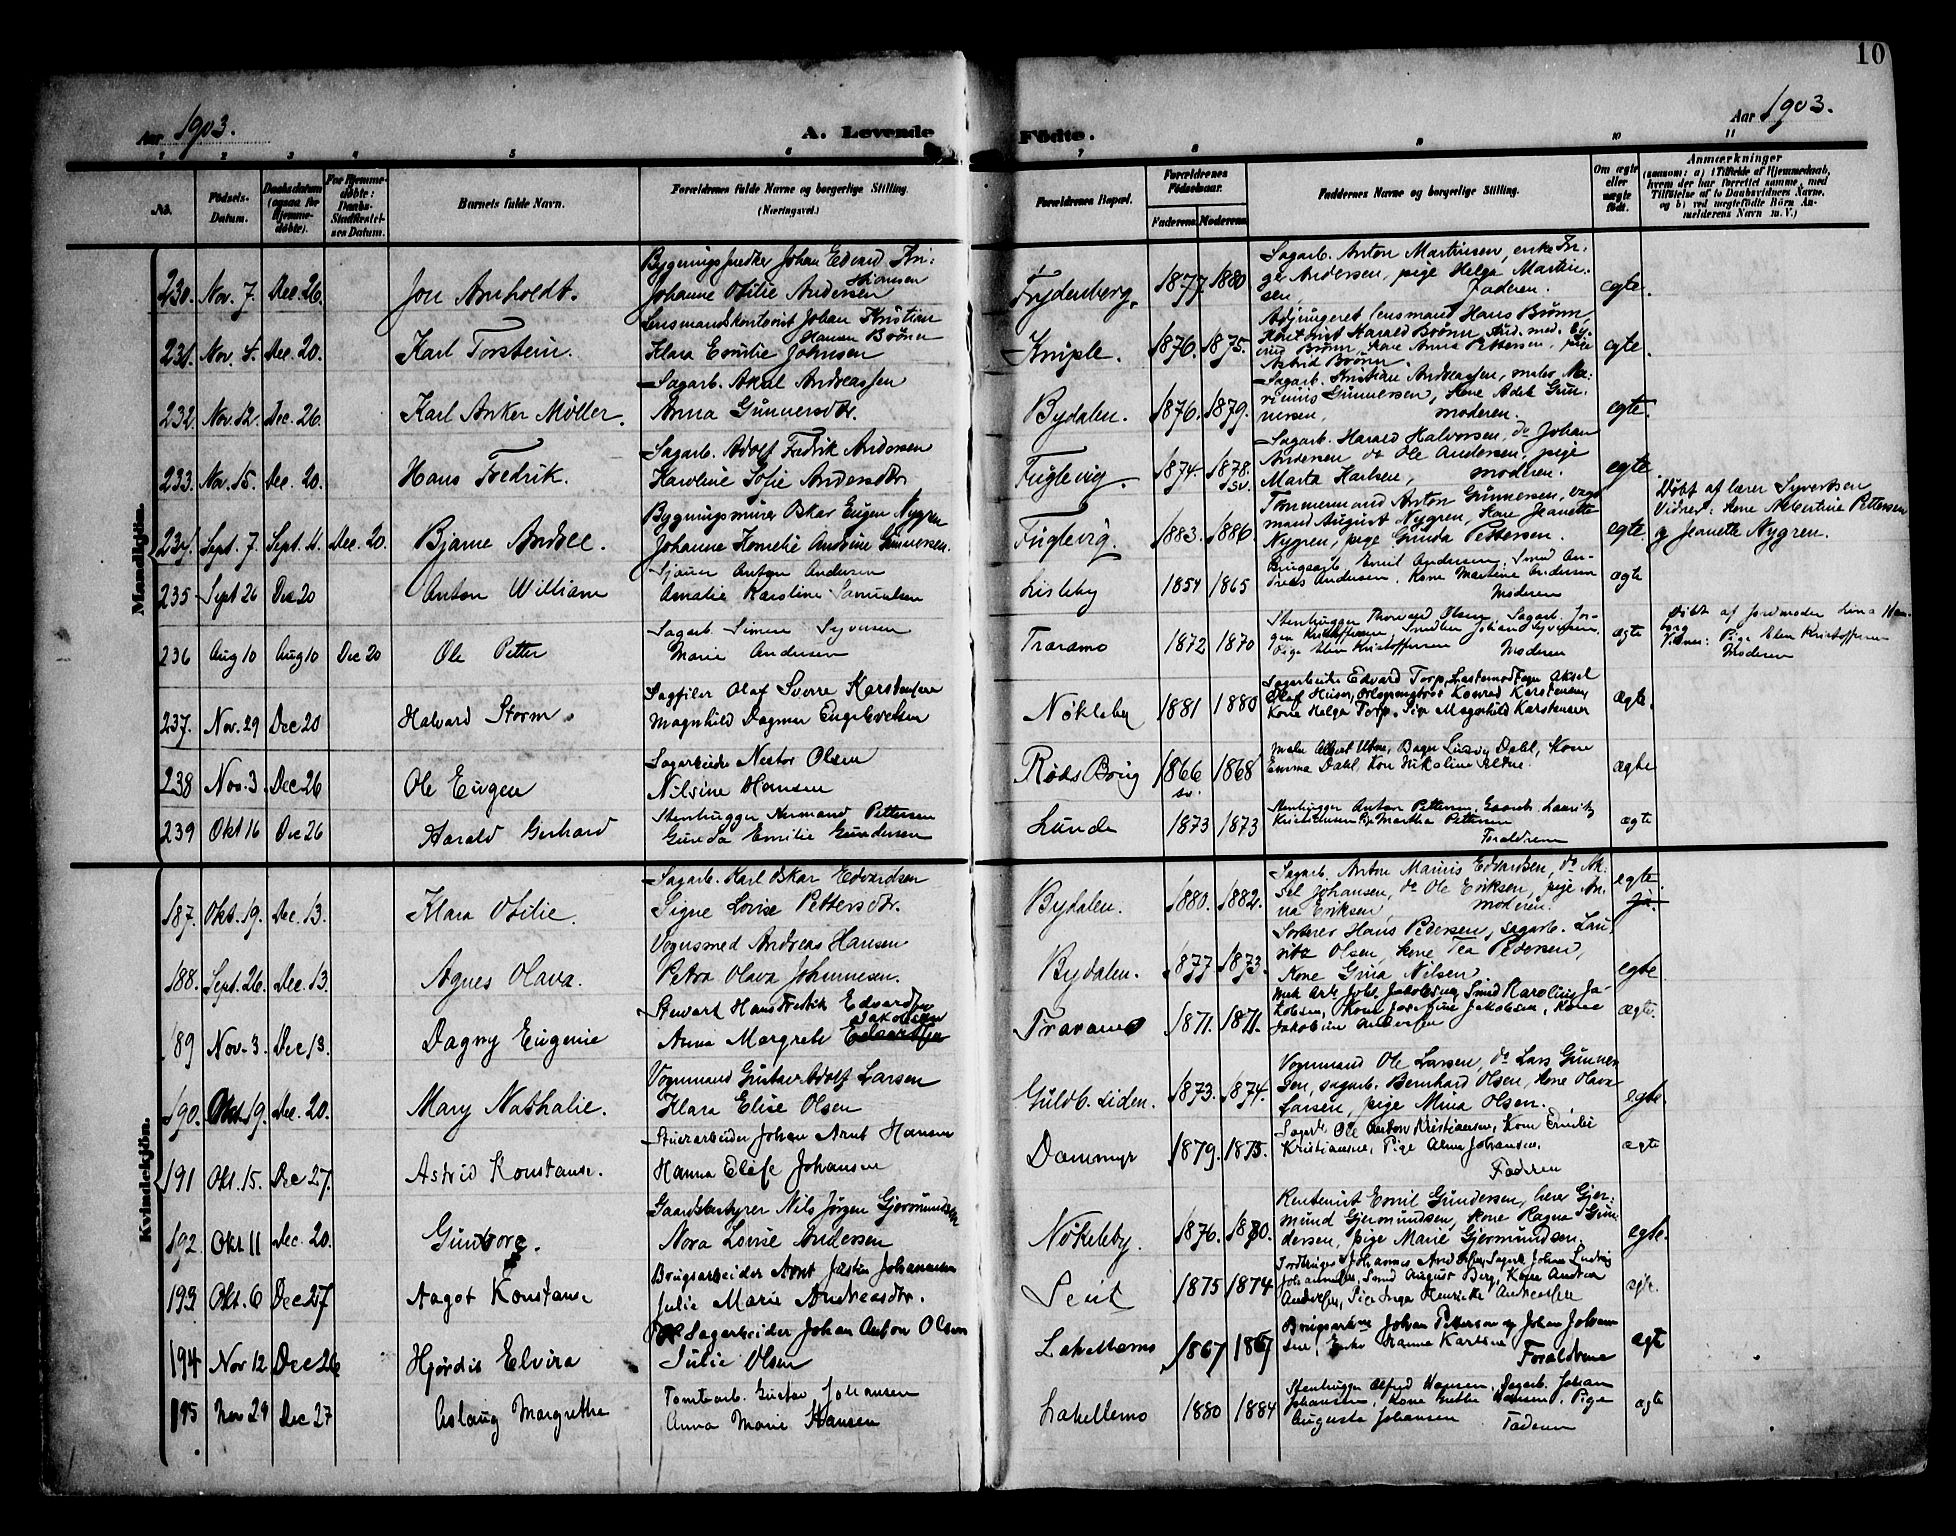 10
Aar 1903.
A. Levende
Födte.
Aar 1903.
1 2 3 4 5 6 7 8 9 10 11
No.
Födsels-Datum.
Daabsdatum (ogsaa for Hjemmedöbte).
For Hjemmedöbte: Daabs-Stadfæstelses Datum.
Barnets fulde Navn.
Forældrenes fulde Navne og borgerlige Stilling. (Næringsvei.)
Forældrenes Bopæl.
Forældrenes Födselsaar.
Faderens Moderens
Faddernes Navne og borgerlige Stilling.
Om ægte eller uægte födt.
Anmærkninger
(saasom: a) i Tilfælde af Hjemmedaab, hvem der har forrettet samme, med Tilföielse af to Daabsvidners Navne, og b) ved uægtefödte Börn Anmelderens Navn m. V.)
Mandkjön.
230. Nov. 7. Dec. 26. Jon Arnholdt. Bygningssnedker Johan Edvard Kristiansen
Johanne Otilie Andersen Frydenberg. 1877 1880 Sagarb. Anton Martinsen, enke Inger Andersen, pige Helga Martinsen, Faderen. egte.
231. Nov. 4. Dec. 20. Karl Torstein. Lensmandskontorist Johan Kristian Hansen Brönn
Klara Emilie Johnsen Kniple. 1876. 1875. Adjungeret lensmand Hans Brönn, Kontorist Harald Brönn, stud. med. Brönn, Kone Anna Pettersen, pige Astrid Brönn. egte.
232. Nov. 12. Dec. 26. Karl Anker Möller. Sagarb. Aksel Andreassen
Anna Gunnersdtr. Bydalen. 1876. 1879. Sagarb. Kristian Andreassen, Marinius Gunnersen, Kone Adele Gunnersen, moderen. egte.
233. Nov. 15. Dec. 20. Hans Fredrik. Sagarb. Adolf Fredrik Andersen
Karoline Sofie Andersdtr. Fuglevig. 1874. 1878. sv. Sagarb. Harald Halvorsen, do Johan Andersen do Ole Andersen, pige Marta Karlsen, moderen. egte
234. Sept. 7. Sept. 11. Dec. 20. Bjarne Andree. Bygningsmurer Oskar Eugen Nygren
Johanne Kornelie Andrine Gunnersen. Fuglevig. 1883. 1886. Tömmermand Anton Gunnersen, vognmand August Nygren, Kone Jeanette Nygren, pige Gunda Pettersen. egte. Döbt af lærer Syvertsen
Vidner: Kone Albertine Pettersen og Jeanette Nygren.
235 Sept 26 Dec 20 Anton William Sjauer Anton Andersen
Amalie Karoline Samuelsen Lisleby 1854 1865 Brugsarb. Emil Andersen, Smed Andreas Andersen, Kone Martine Andersen Moderen ægte
236 Aug 10 Aug 10 Dec 20 Ole Petter Sagarb. Simen Syversen
Marie Andersen Traramo 1872 1870 Stenhugger Thorvald Olsen, Sagarb. Jörgen Kristoffersen, Johan Syversen, Pige Elen Kristoffersen Moderen ægte Döbt af jordmoder Lina
Vidner: Pige Elen Kristoffersen
Moderen
237. Nov. 29 Dec 20 Halvard Storm. Sagfiler Olaf Sverre Karstensen
Magnhild Dagmar Engebretsen Nökleby 1881 1880 Sagarbeider Edvard Torp, Aksel Olaf Konrad Karstensen, Kone Helga Torp, Pige Magnhild Karstensen ægte.
238 Nov. 3 Dec 26 Ole Eugen Sagarbeider Nestor Olsen
Nilsine Hansen Röds Brug 1866 sv. 1868 Maler Albert Utne, Bager Ludvig Dahl, Kone Emma Dahl, Kone Nikoline Utne. ægte
239 Okt 16 Dec 26 Harald Gerhard Stenhugger Hermand Pettersen
Gunda Emilie Gundersen Lunde 1873 1873 Stenhugger Anton Pettersen, Gaardb. Lauritz Kristiansen Pige Martha Pettersen Forældrene ægte
Kvindekjön.
187. Okt. 19. Dec. 13. Klara Otilie. Sagarb. Karl Oskar Edvardsen
Signe Lovise Pettersdtr. Bydalen. 1880. 1882. Sagarb. Anton Marius Edvardsen, do Aksel Johansen, do Ole Eriksen, pige Anna Eriksen, moderen. egte.
188. Sept. 26. Dec. 13. Agnes Olava. Vognsmed Andreas Hansen
Petra Olava Johannesen. Bydalen. 1877. 1873. Sorterer Hans Pedersen, sagarb. Lauritz Olsen, kone Tea Pedersen, Kone Gina Nilsen. egte.
189 Nov. 3 Dec 13. Dagny Eugenie Stuvert Hans Fredrik Edvardsen
Anna Margrete Jakobsen Traramo 1871. 1871. Mek Arb. Johs. Jakobsen, Smed Karolius Jakobsen, Kone Josefine Jakobsen, Kone Jakobine Andersen ægte.
190. Okt. 19. Dec. 20. Mary Nathalie. Vognmand Gustav Adolf Larsen
Klara Elise Olsen Guldb. Liden. 1873. 1874. Vognmand Ole Larsen, do Lars Gunnersen, sagarb. Bernhard Olsen, kone Olava Larsen, pige Mina Olsen. egte.
191 Okt. 15. Dec 27. Astrid Konstanse. Stuerarbeider Johan Arnt Hansen
Hanna Elise Johansen Dammyr 1879. 1875. Sagarb. Ole Anton Kristiansen, Kone Emilie Kristiansen, Pige Anna Johansen. Faderen ægte
192. Okt 11 Dec. 20. Gunvorg. Gaardsbestyrer Nils Jörgen Gjermundsen
Nora Lovise Andersen Nökleby. 1876. 1880. Rentenist Emil Gundersen, lærer Gjermund Gjermundsen, kone Ragna Gundersen, pige Marie Gjermundsen. egte.
193 Okt. 6 Dec 27 Aagot Konstanse Brugsarbeider Arnt Justin Johannesen
Julie Marie Andreasdtr. Leut 1875 1874 Johannes Andersen, Sagarb. Johan Ludvig Johannesen, Smed August Berg, Kone Andrea Andersen, Pige Inga Henriette Andreassen ægte.
194 Nov 12 Dec 26 Hjördis Elvira Sagarbeider Johan Anton Olsen
Julie Olsen Lahellemo 1867 1867 Brugsarbeiderne Johan Pettersen og Johan Johansen, Enke Hanna Karlsen Forældrene ægte
195 Nov 29 Dec 27 Aslaug Margrethe Tomtearb. Gustav Johansen
Anna Marie Hansen Lahellemo 1880 1884 Stenhugger Alfred Hansen, Sagarb. Johan Johansen, Kone Grethe Hansen, Pige Augusta Johansen Faderen ægte